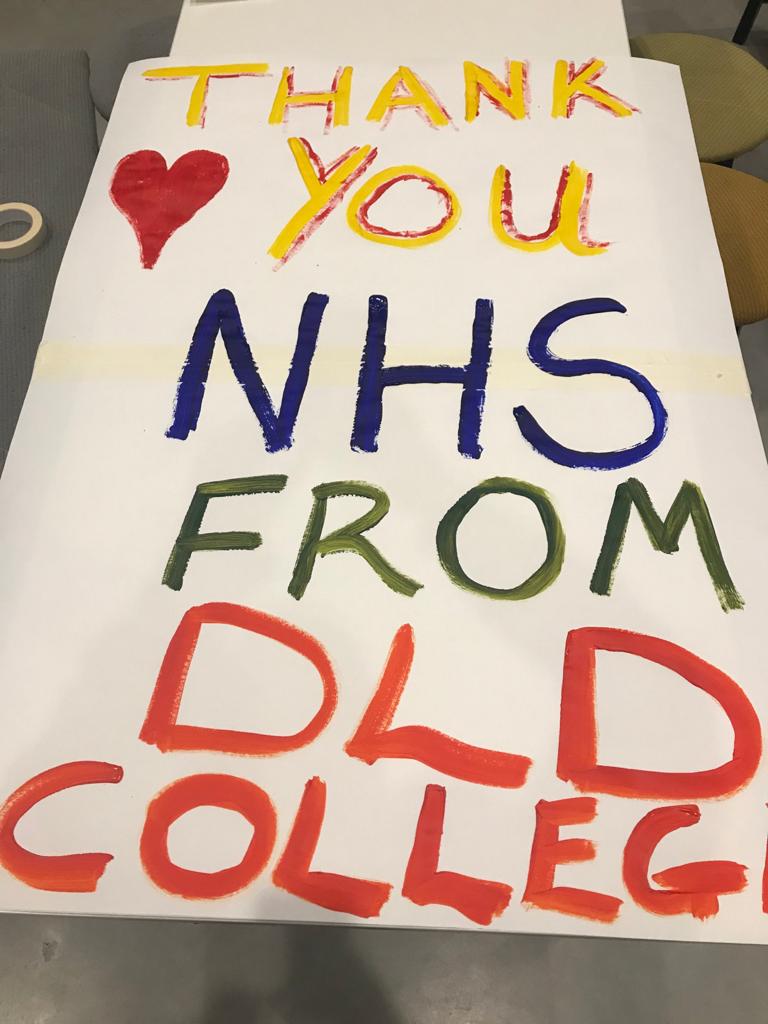 THANK
YOU
NHS
FROM
DLD
COLLEGE